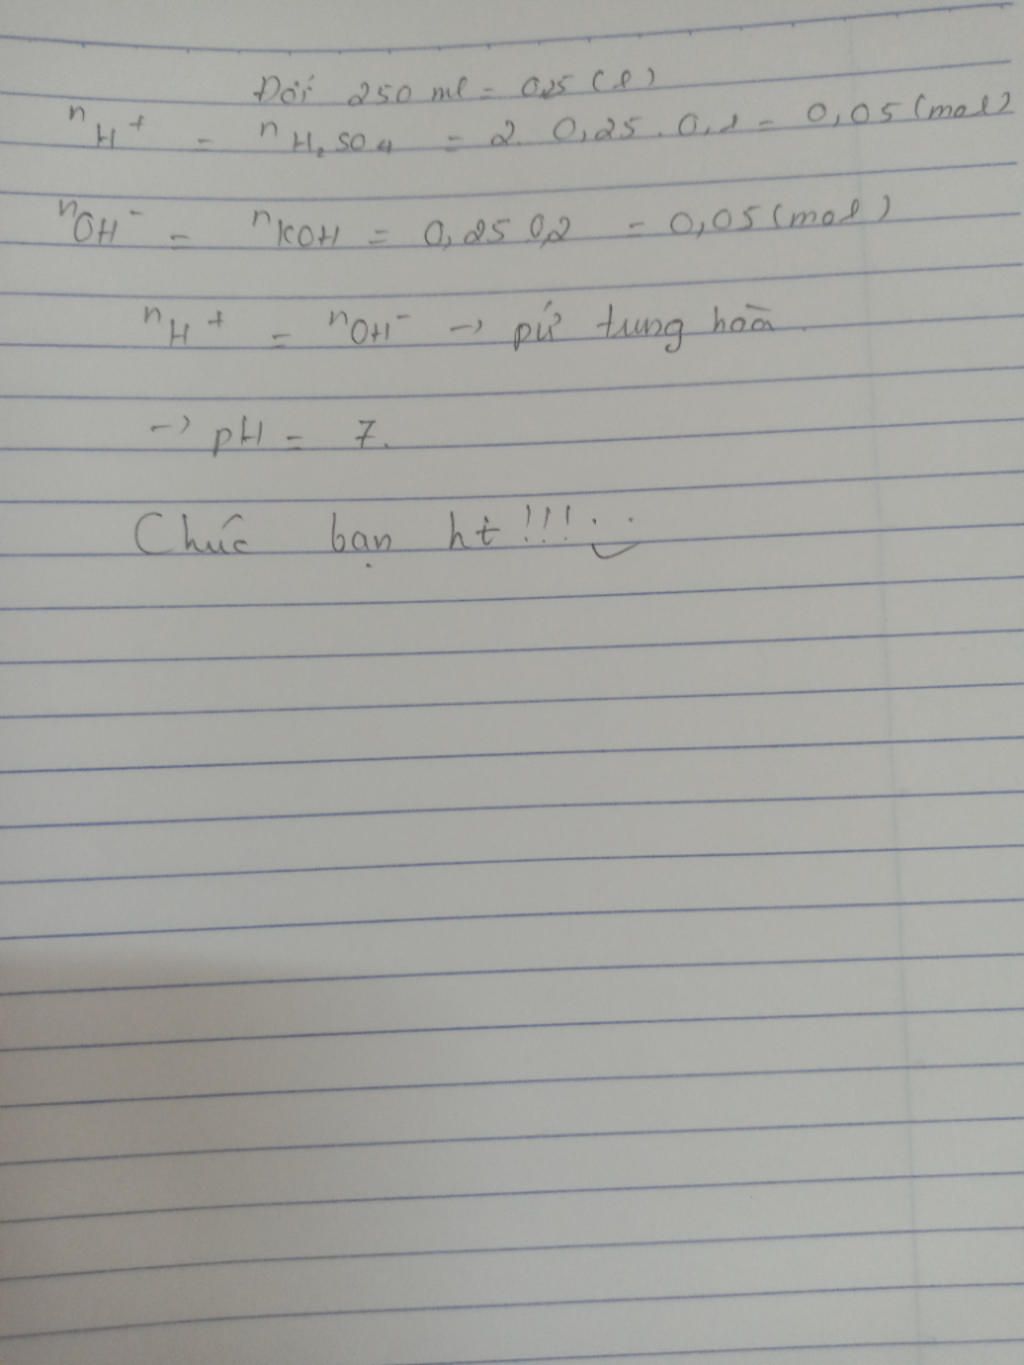 Đổi 250 ml = 0,25 (l)
nH+ = nH2SO4 = 2. 0,25 . 0,1 = 0,05 (mol)
nOH- = nKOH = 0,25 0,2 = 0,05 (mol)
nH+ = nOH- → pứ tung hoà.
→ pH = 7.
Chúc bạn ht !!!